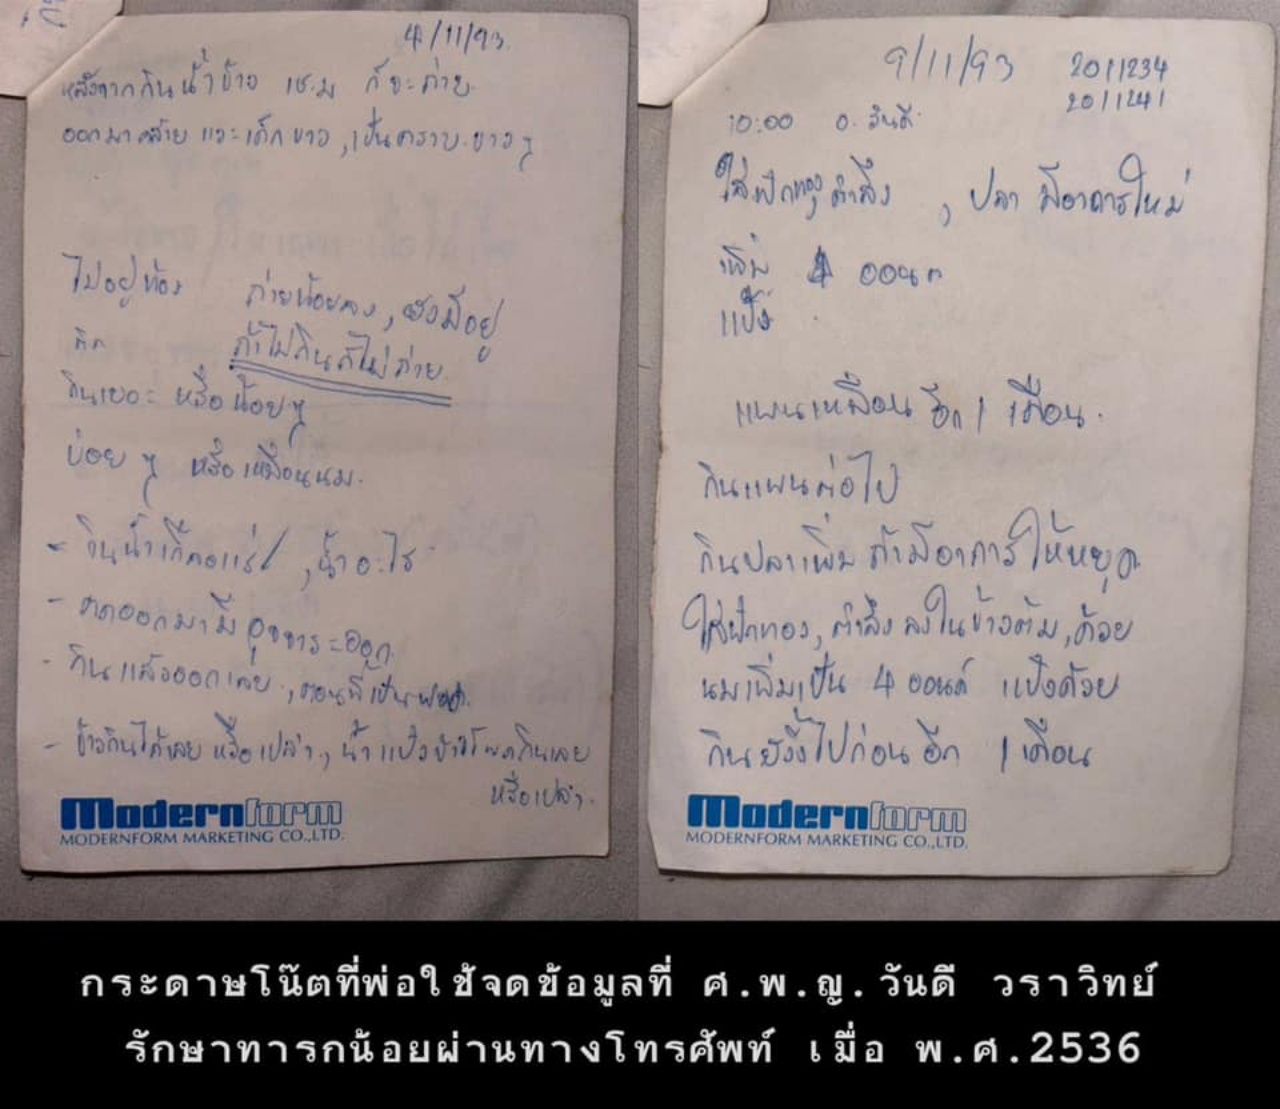 4/11/93
หลังจากกินน้ำข้าว ๑ช.ม ก็จะถ่าย
ออกมาคล้าย แวะเด็กขาว, เป็นคราบขาวๆ
ไม่อยู่ท้อง ถ่ายน้อยลง, ยังมีอยู่
ถ้าไม่กินก็ไม่ถ่าย
กินเยอะ หรือ น้อยๆ
บ่อย ๆ หรือ เหมือนนม.
- กินน้ำเกลือแร่, น้ำอะไร
- ตดออกมามีอุจจาระออก
- กินแล้วออกเลย,
- ข้าวกินได้เลย หรือเปล่า, น้ำแป้งข้าวโพดกินเลย
หรือเปล่า.
Modernform
MODERNFORM MARKETING CO.,LTD.
9/11/93 2011234
2011241
10:00 อ. วันดี
ใส่ฟักทอง, ตำลึง, ปลา มีอาการใหม่
เพิ่ม 4 ออนส
แป้ง
แผนเหมือน อีก 1 เดือน.
กินแผนต่อไป
กินปลาเพิ่ม ถ้ามีอาการ ให้หยุด
ใส่ฟักทอง, ตำลึง ลงในข้าวต้ม, ด้วย
นมเพิ่มเป็น 4 ออนส์ แป้งด้วย
กินยังงี้ไปก่อน อีก 1 เดือน
Modernform
MODERNFORM MARKETING CO.,LTD.
กระดาษโน๊ตที่พ่อใช้จดข้อมูลที่ ศ.พ.ญ.วันดี วราวิทย์
รักษาทารกน้อยผ่านทางโทรศัพท์ เมื่อ พ.ศ.2536